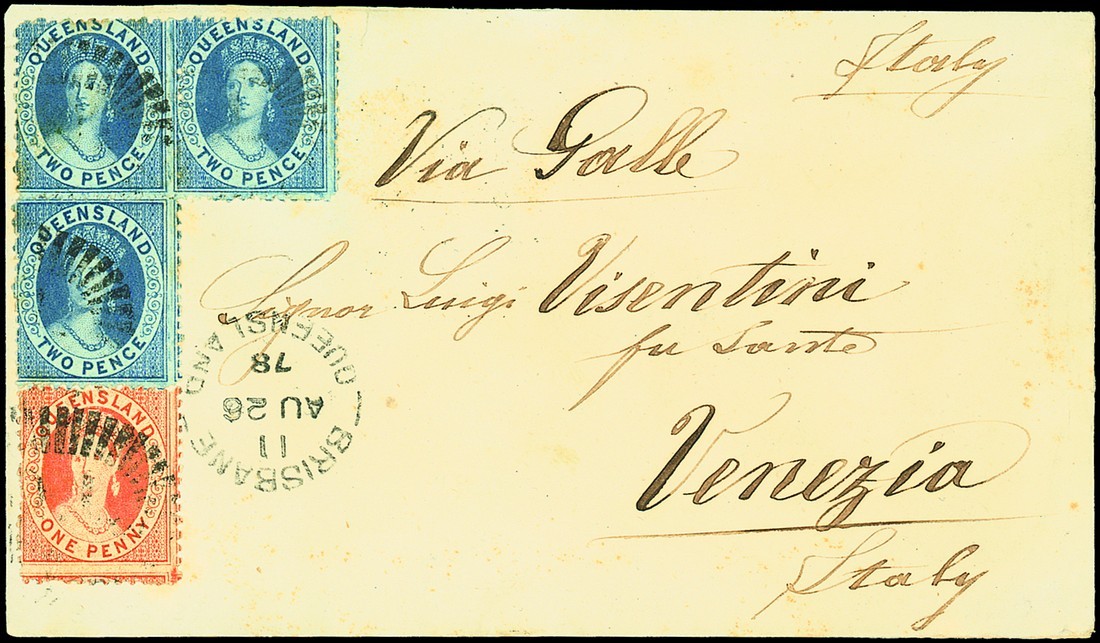 QUEENSLAND
TWO PENCE
QUEENSLAND
TWO PENCE
QUEENSLAND
TWO PENCE
QUEENSLAND
ONE PENNY
Italy
Via Galle
Signor Luigi Visentini
fu Sante
Venezia
Italy
BRISBANE
QUEENSLAND
11
AU 26
78